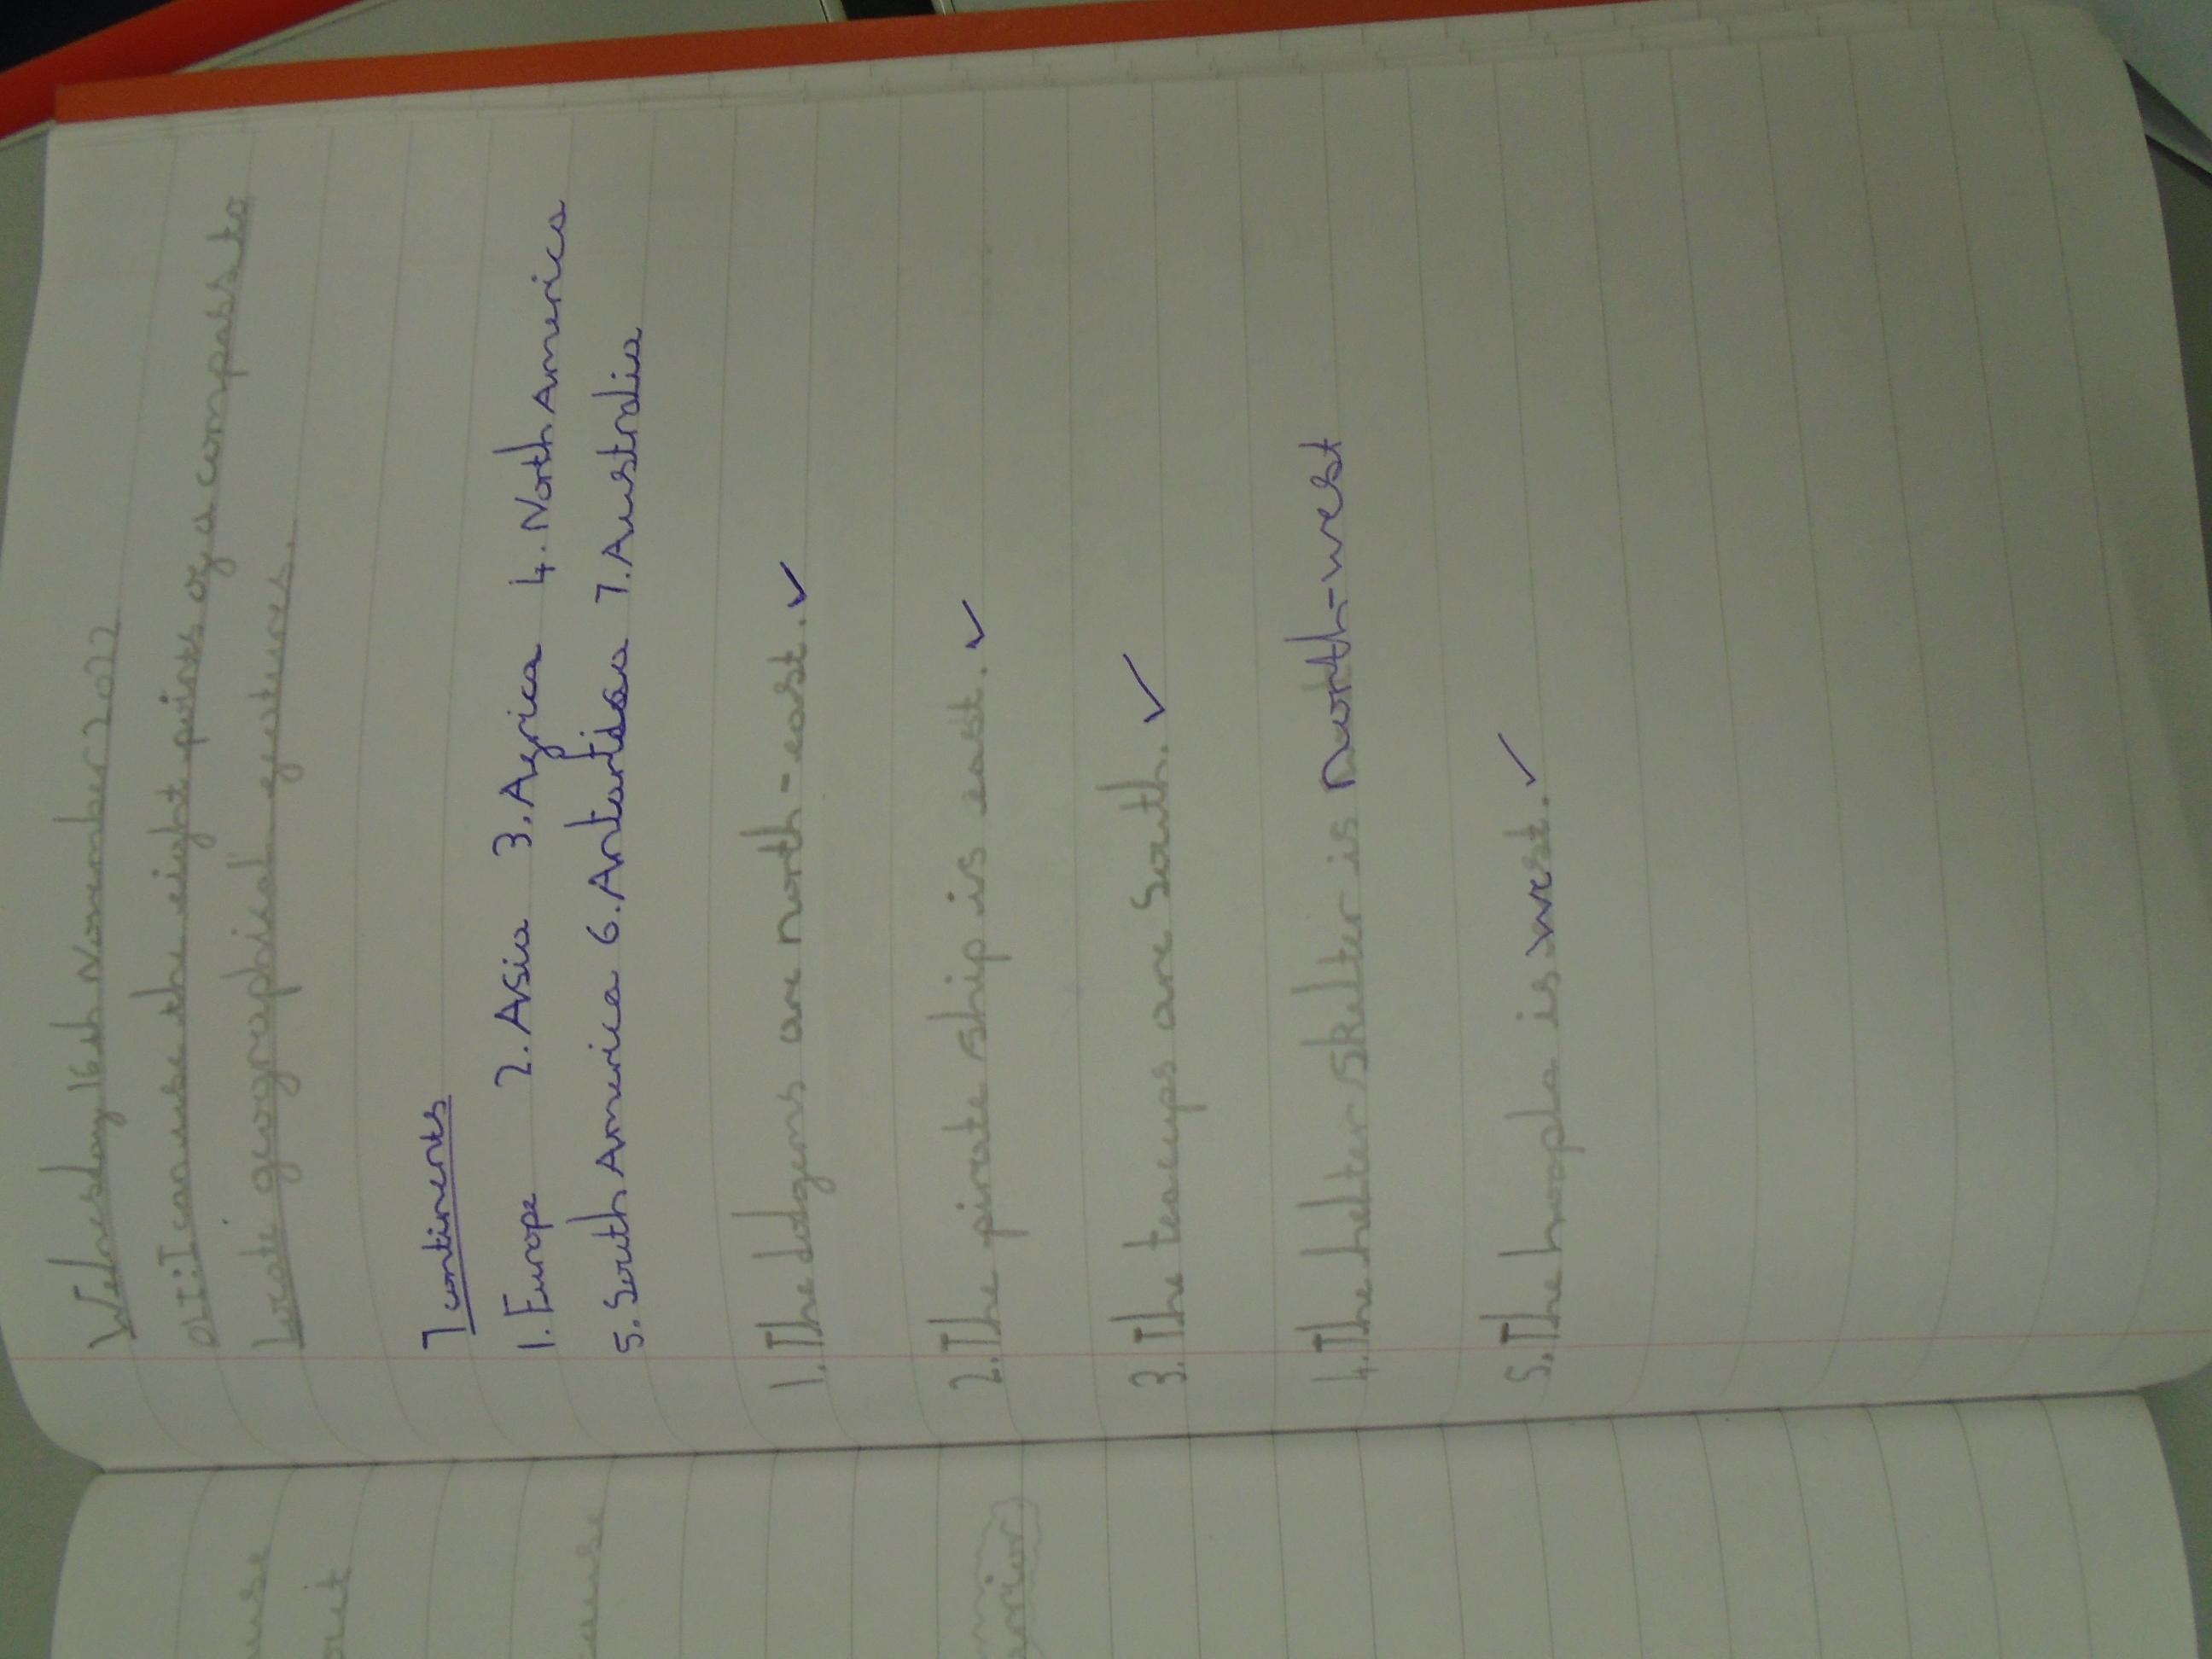 Wednesday 16th November 2022
O.L.I: I can use the eight points of a compass to
locate geographical features.
7 continents
1. Europe 2. Asia 3. Africa 4. North America
5. South America 6. 7. Australia
1. The dodgems are north-east. ✓
2. The pirate ship is east. ✓
3. The teacups are south. ✓
4. The helter skelter is north-west
5. The hoopla is west. ✓
use
cause